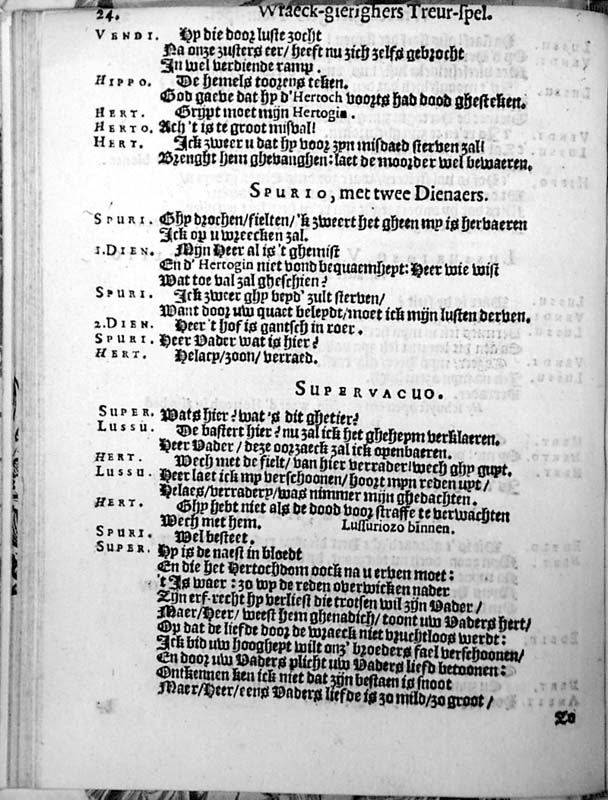 24. Wraeck-gierighers Treur-spel.
VENDI. Hy die door luste zocht
Na onze zusters eer/ heeft nu zich zelfs gebrocht
In wel verdiende ramp.
HIPPO. De hemels toorens teken.
God gaeve dat hy d'Hertoch voorts had dood ghesteken.
HERT. Grijpt moet mijn Hertogin.
HERTO. Ach 't is te groot misval!
HERT. Ick zweer u dat hy voor zyn misdaed sterven zal!
Brenght hem ghevanghen: laet de moorder wel bewaeren.
SPURIO, met twee Dienaers.
SPURI. Ghy drochen/ fielten/ 'k zweert het gheen my is hervaeren
Ick op u wreecken zal.
1. DIEN. Mijn Heer al is 't ghemist
En d'Hertogin niet vond bequaemheyt: Heer wie wist
Wat toe val zal gheschien?
SPURI. Ick zweer ghy beyd' zult sterven/
Want door uw quaet beleydt/ moet ick mijn lusten derven.
2. DIEN. Heer 't hof is gantsch in roer.
SPURI. Heer Vader wat is hier?
HERT. Helacy/ zoon/ verraed.
SUPERVACUO.
SUPER. Wats hier? wat 's dit ghetier?
LUSSU. De bastert hier? nu zal ick het gheheym verklaeren.
Heer Vader/ deze oorzaeck zal ick openbaeren.
HERT. Wech met de fielt/ van hier verrader! wech ghy guyt.
LUSSU. Heer laet ick my verschoonen/ hoort myn reden uyt/
Helaes/ verradery/ was nimmer mijn ghedachten.
HERT. Ghy hebt niet als de dood voor straffe te verwachten
Wech met hem. Lussuriozo binnen.
SPURI. Wel besteet.
SUPER. Hy is de naest in bloedt
En die het Hertochdom oock na u erven moet:
't Is waer: zo wy de reden overwicken nader
Zyn erf-recht hy verliest die trotsen wil zijn Vader/
Maer/ Heer/ weest hem ghenadich/ toont uw Vaders hert/
Op dat de liefde door de wraeck niet vruchtloos werdt:
Ick bid uw hoogheyt wilt onz' broeders fael verschoonen/
En door uw Vaders plicht uw Vaders liefd betoonen:
Ontkennen ken ick niet dat zijn bestaen is snoot
Maer/ Heer/ eens Vaders liefde is zo mild/ zo groot/
Zo